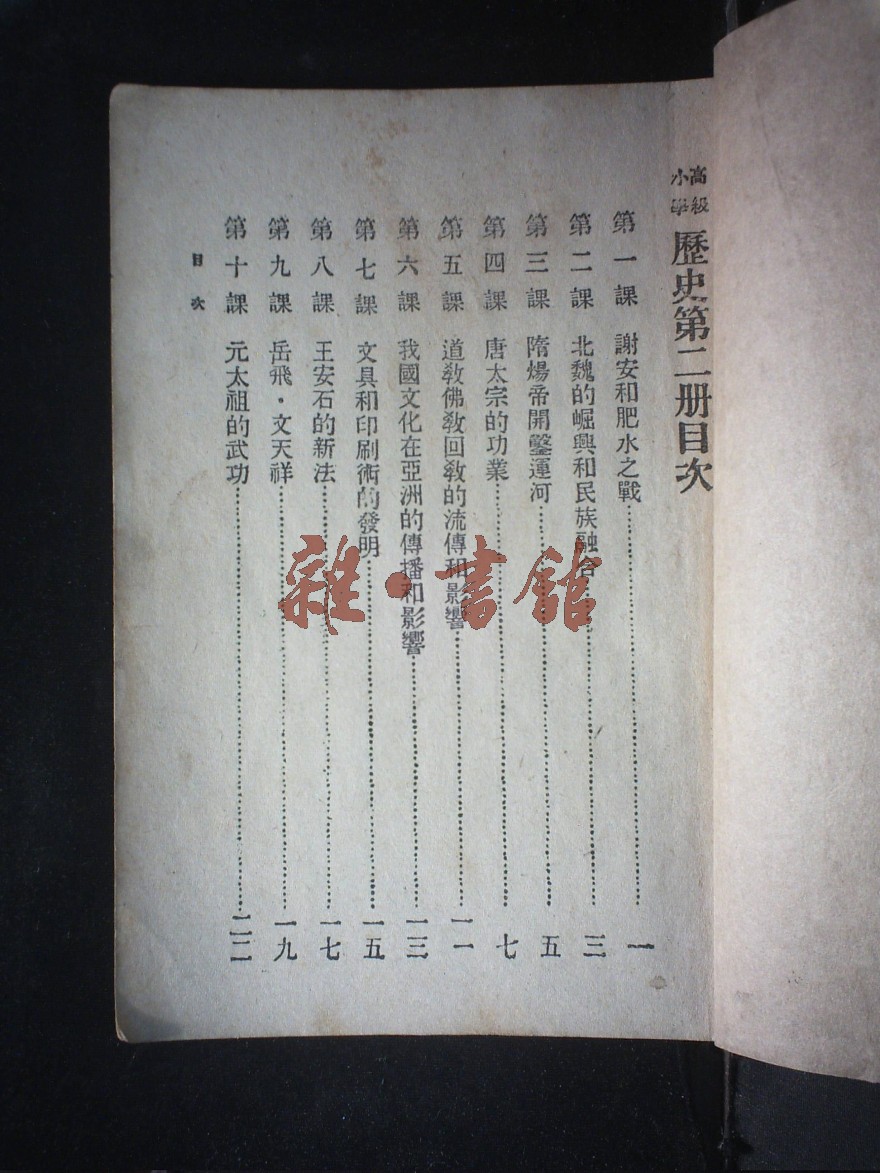 高級小學
歷史第二册目次
第一課 謝安和肥水之戰……一
第二課 北魏的崛興和民族融合……三
第三課 隋煬帝開鑿運河……五
第四課 唐太宗的功業……七
第五課 道教佛教回教的流傳和影響……一一
第六課 我國文化在亞洲的傳播和影響……一三
第七課 文具和印刷術的發明……一五
第八課 王安石的新法……一七
第九課 岳飛·文天祥……一九
第十課 元太祖的武功……二二
目次
雜·書館